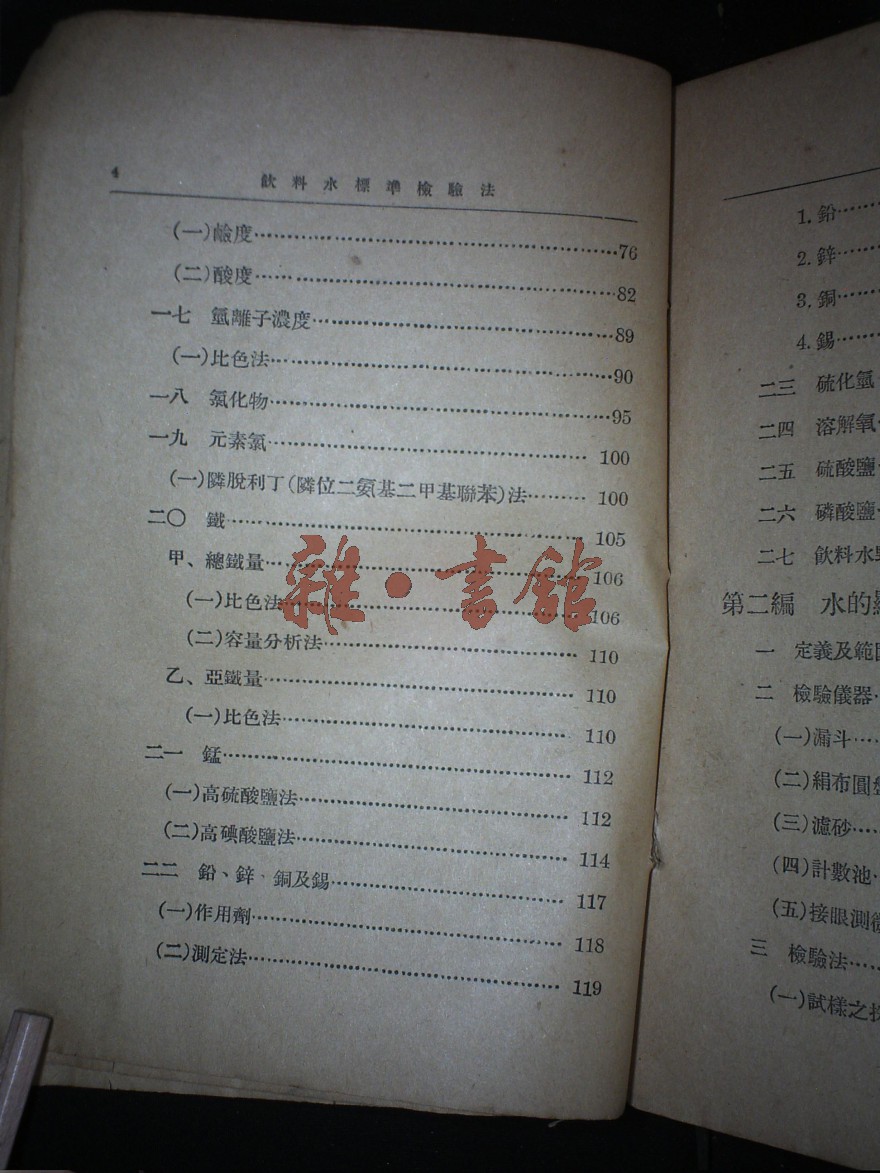 4
飲料水標準檢驗法
(一)鹼度……76
(二)酸度……82
一七 氫離子濃度……89
(一)比色法……90
一八 氯化物……95
一九 元素氯……100
(一)隣脫利丁(隣位二氨基二甲基聯苯)法……100
二〇 鐵……105
甲、總鐵量……106
(一)比色法……106
(二)容量分析法……110
乙、亞鐵量……110
(一)比色法……110
二一 錳……112
(一)高硫酸鹽法……112
(二)高碘酸鹽法……114
二二 鉛、鋅、銅及錫……117
(一)作用劑……118
(二)測定法……119
雜·書館
1. 鉛……
2. 鋅……
3. 銅……
4. 錫……
二三 硫化氫
二四 溶解氧
二五 硫酸鹽
二六 磷酸鹽
二七 飲料水
第二編 水的
一 定義及範
二 檢驗儀器
(一)漏斗……
(二)絹布圓
(三)濾砂……
(四)計數池
(五)接眼測
三 檢驗法……
(一)試樣之